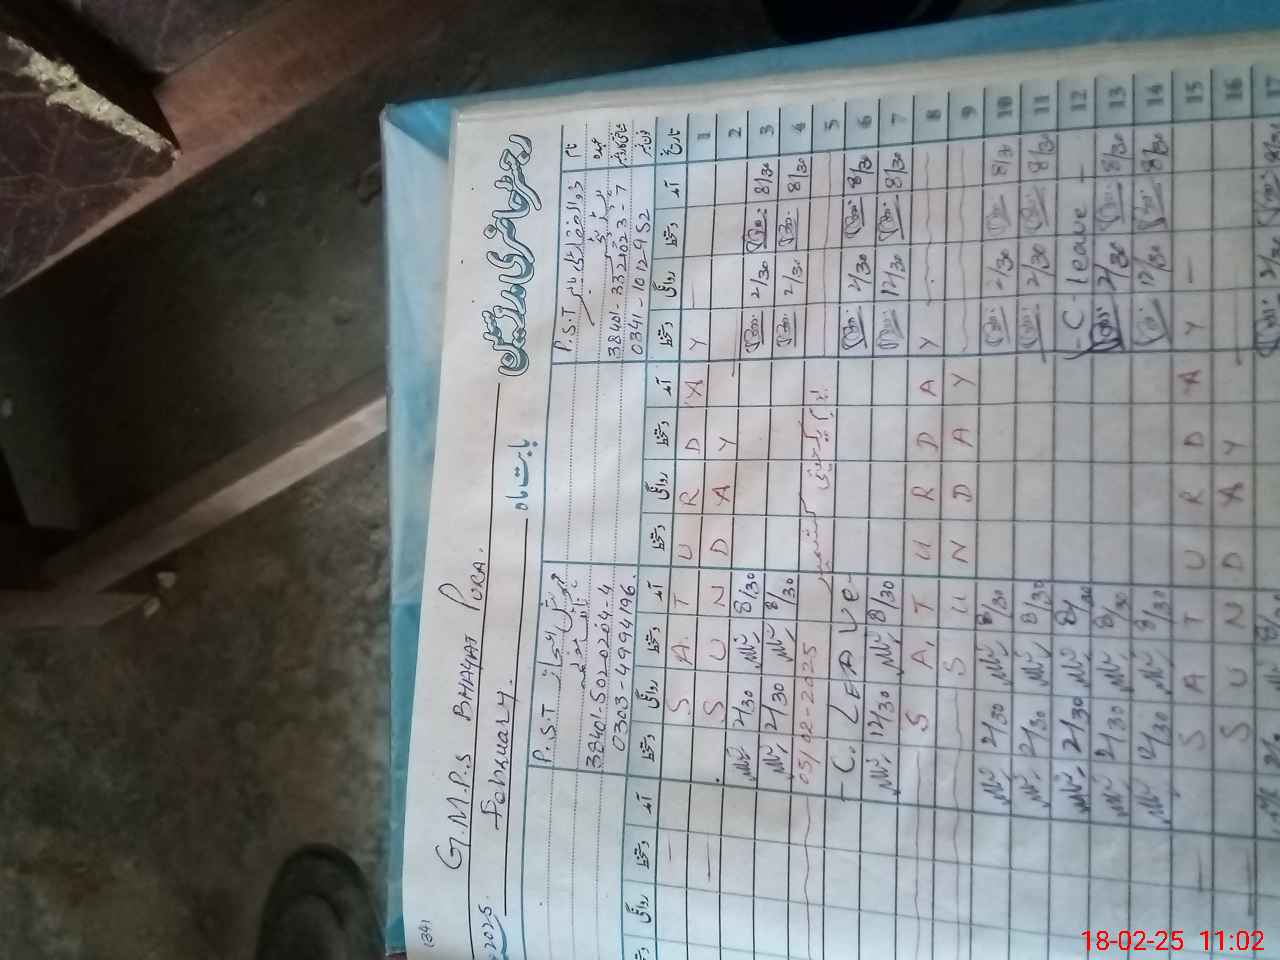 (34)
G.M.P.S BHAYAT PURA.
رجسٹر حاضری مدرسین
2025. February. بابت ماہ
نام
عہدہ
شناختی کارڈ نمبر
فون نمبر
P.S.T
38401-3321023-7
0341-1012952
P.S.T
38401-5020204-4
0303-4994196.
تاریخ آمد دستخط روانگی دستخط آمد دستخط روانگی دستخط آمد دستخط روانگی دستخط آمد دستخط روانگی دستخط
1 S A T U R D A Y
2 S U N D A Y
3 8/30 2/30 8/30 2/30
4 8/30 2/30 8/30 2/30
5 05/02-2025 کشمیر
6 8/30 2/30 C. LEAVE
7 8/30 12/30 8/30 12/30
8 S A T U R D A Y
9 S U N D A Y
10 8/30 2/30 8/30 2/30
11 8/30 2/30 8/30 2/30
12 C-leave 8/30 2/30
13 8/30 2/30 8/30 2/30
14 8/30 12/30 8/30 12/30
15 S A T U R D A Y
16 S U N D A Y
17 8/30 2/30 8/30
18-02-25 11:02